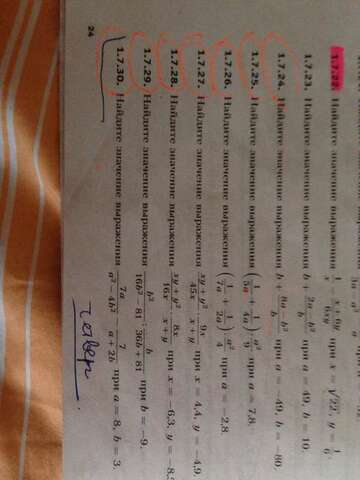 1.7.22. Найдите значение выражения 1/x − (x + 6y)/6xy при x = √22, y = 1/6.
1.7.23. Найдите значение выражения b + (2a − b²)/b при a = 49, b = 10.
1.7.24. Найдите значение выражения b + (8a − b²)/b при a = −49, b = −80.
1.7.25. Найдите значение выражения (1/5a + 1/4a) · a²/9 при a = 7,8.
1.7.26. Найдите значение выражения (1/7a + 1/2a) · a²/4 при a = −2,8.
1.7.27. Найдите значение выражения (xy + y²)/45x · 9x/(x + y) при x = 4,4, y = −4,9.
1.7.28. Найдите значение выражения (xy + y²)/16x · 8x/(x + y) при x = −6,3, y = −8,
1.7.29. Найдите значение выражения b³/(16b² − 81) : b/(36b + 81) при b = −9.
1.7.30. Найдите значение выражения 7a/(a² − 4b²) − 7/(a + 2b) при a = 8, b = 3.
24